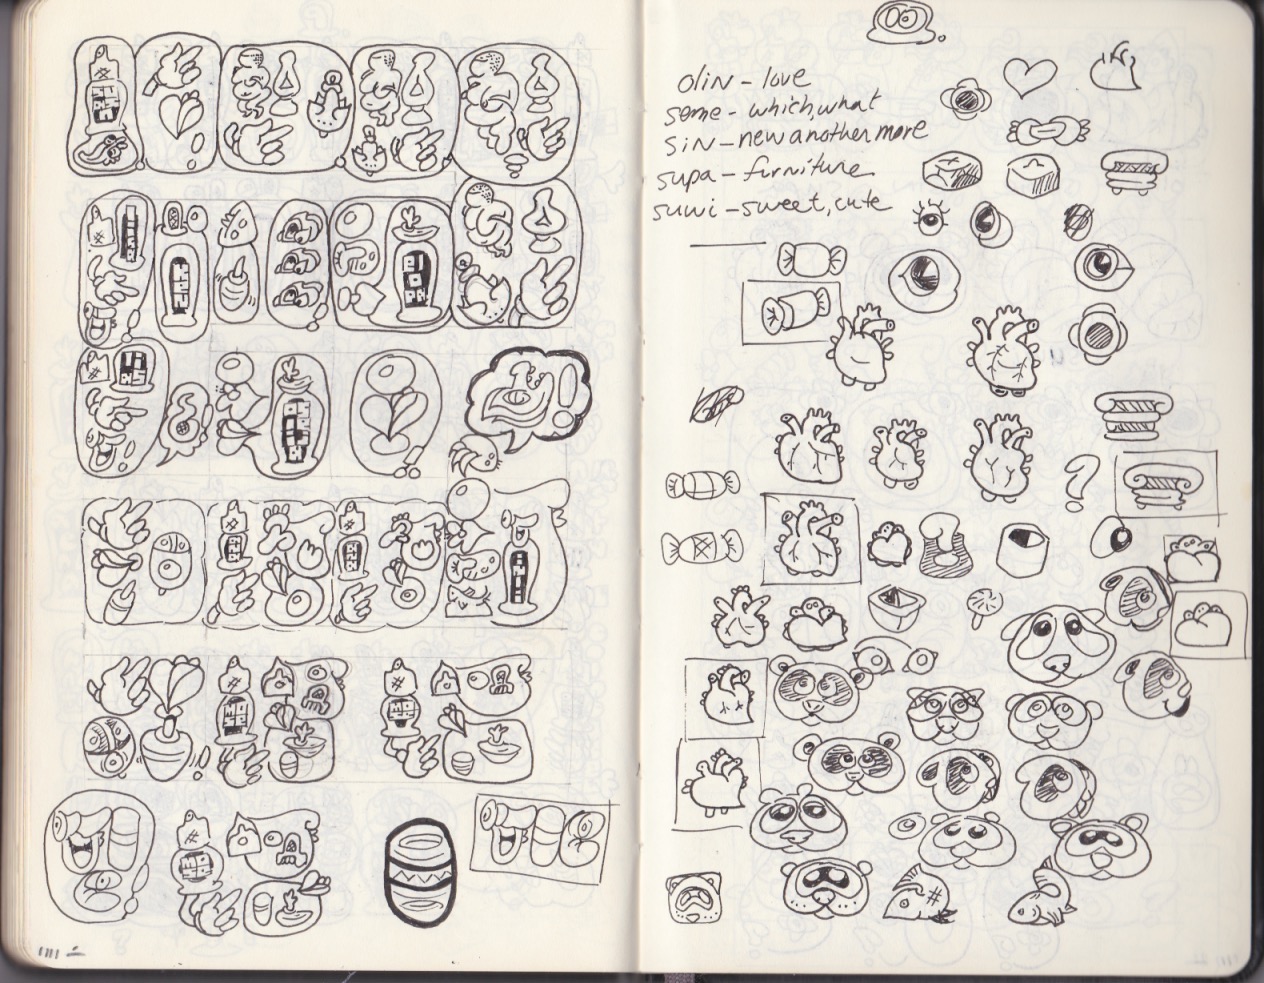 olin - love
seme - which, what
sin - new another more
supa - furniture
suwi - sweet, cute
?